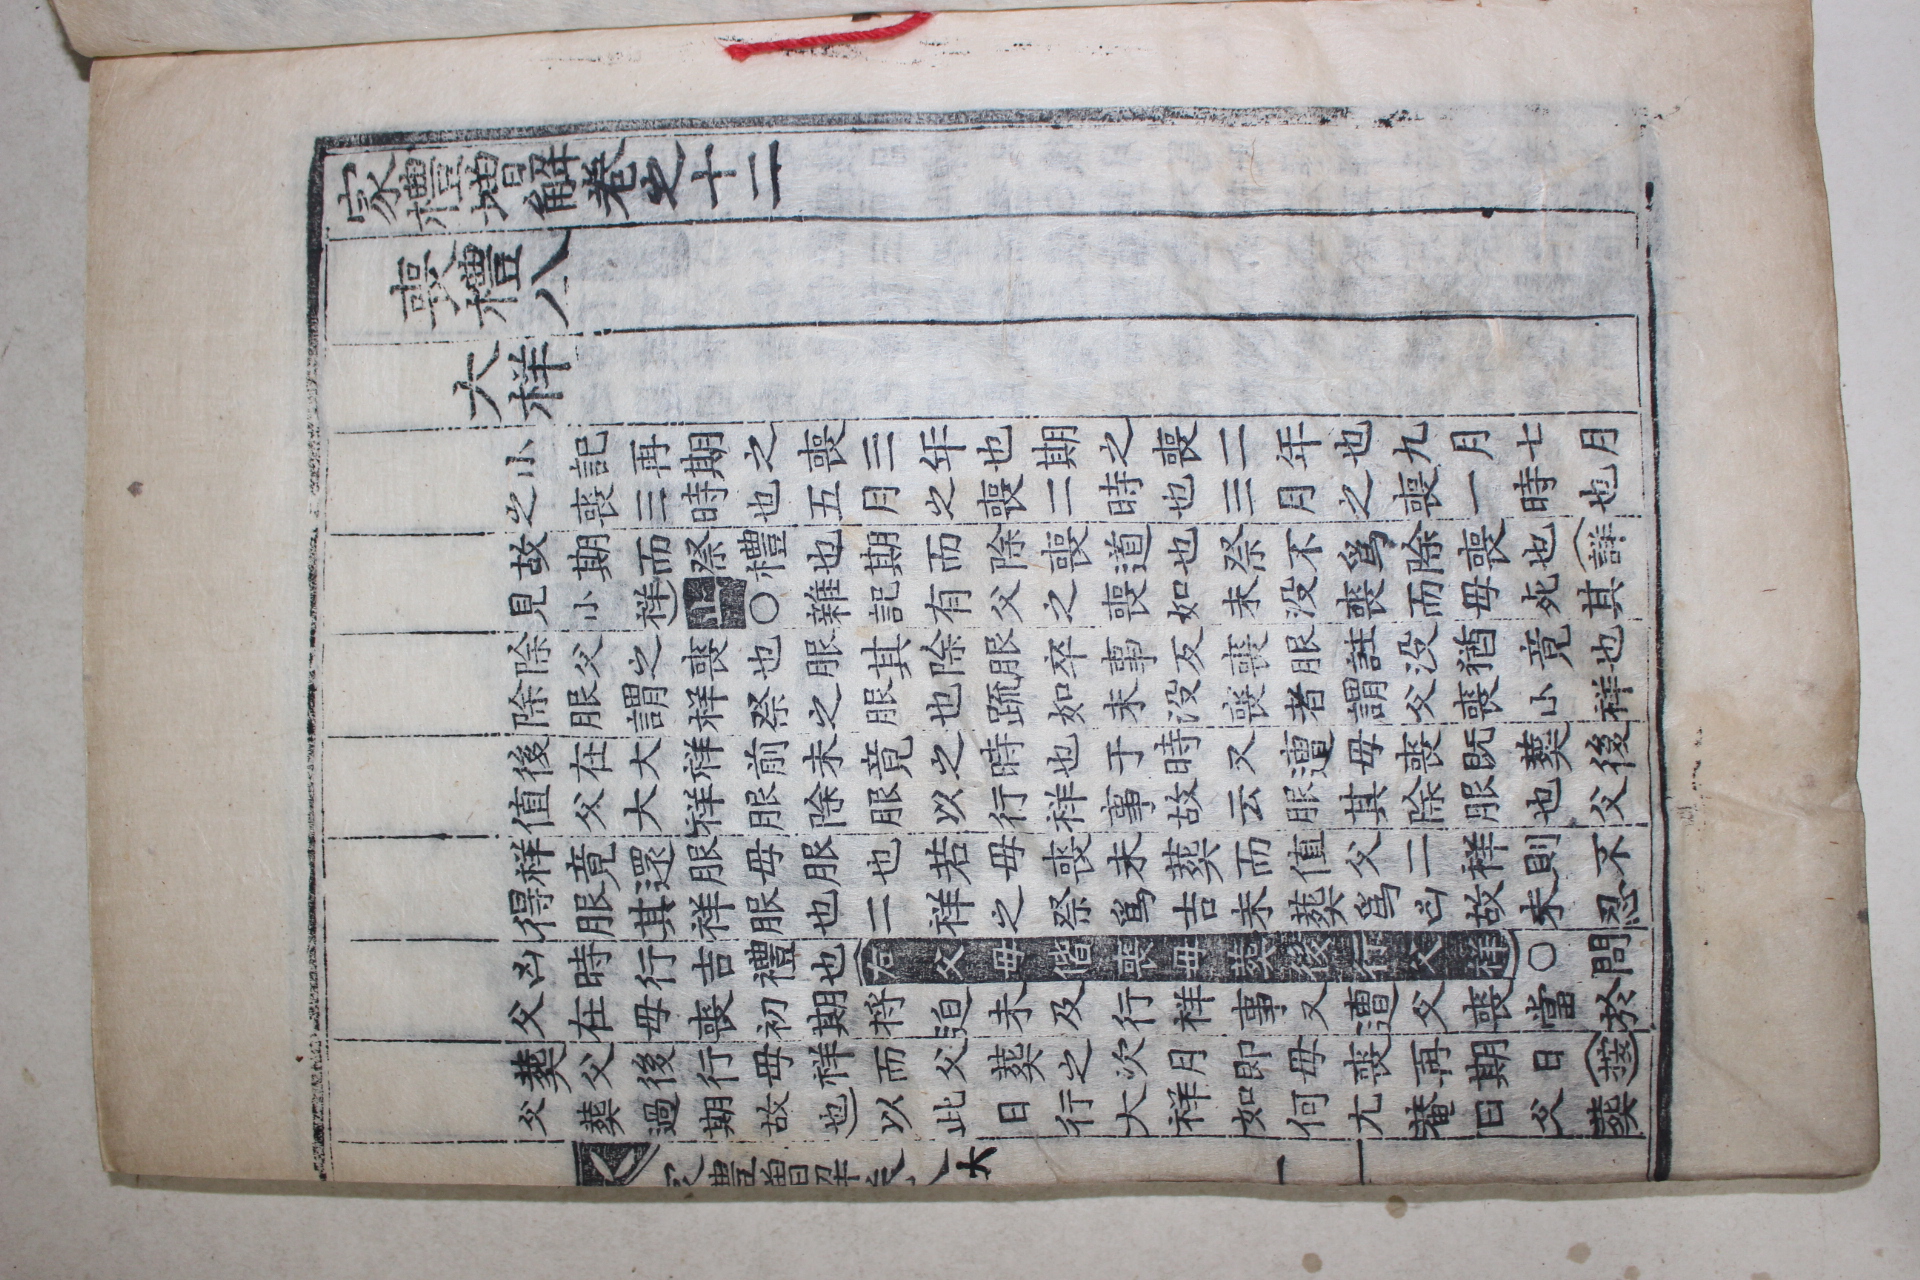 家禮增解卷之十二
喪禮八
大祥
小記再期之喪三年也期之喪二年也九月七月
之喪三時也五月之喪二時也三月之喪一時也
故期而祭禮也期而除喪道也祭不爲除喪也(詳
見小祥)○雜記有父之喪如未没喪而母死其
除父之喪也服其除服卒事反喪服註没猶竟也
除服謂祥祭之服也䟽如未没喪者謂父喪小祥
後在大祥前未竟之時也于時又遭母喪既葬後
值父大祥服除服以行祥事故云服其除服也父
祥竟還服母服也若母喪未葬而值父二祥則不
得服其祥服也二祥之祭爲吉未葬爲凶故未忍
凶時行吉禮也(右父母偕喪母葬後行父祥)○問
父在母喪初期將迫未及行祥事又遭父喪當於
葬父後行母祥而父葬之次月即母喪再期日(按
父葬過期故也)以此日行大祥如何尤菴曰父葬
家禮增解卷
大
一